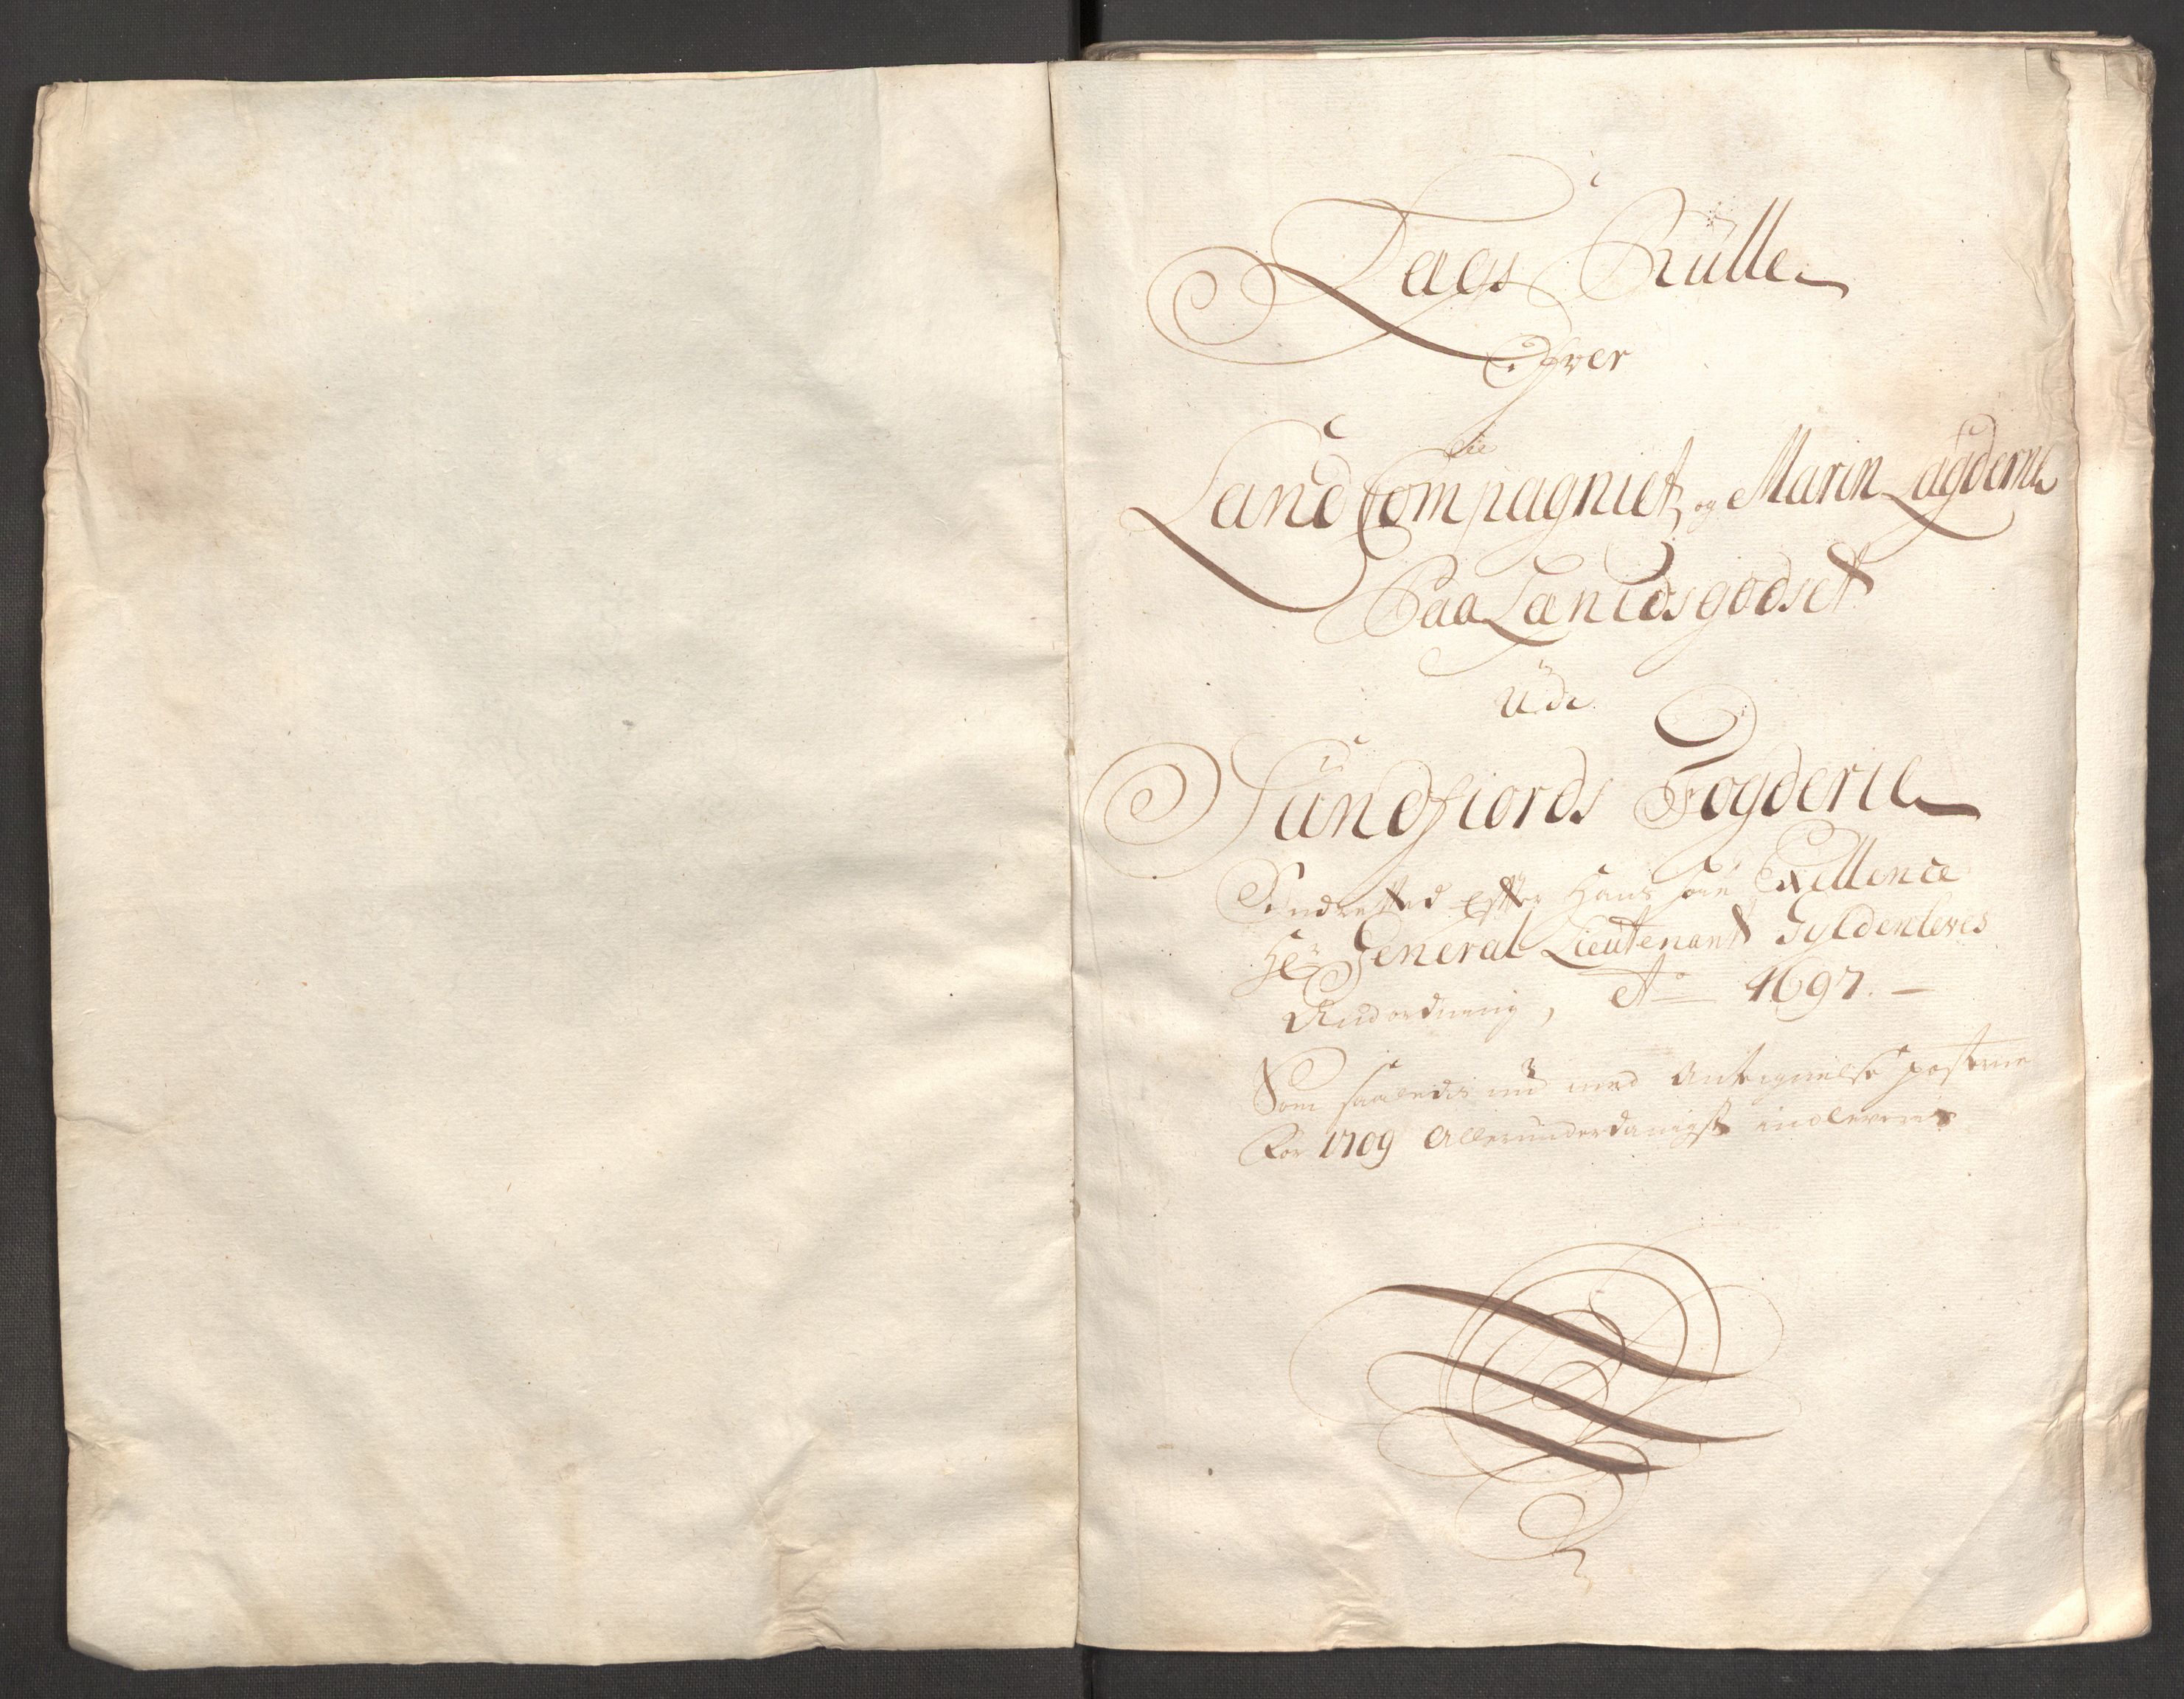 Laegs Rulle
Ofver
Die
Land Compagniet og Marin Lægderne
Paa Landsgodset
Udi
Sundfiords Fogderie
Indretted Efter Hans höie Exellence
Hr General Lieutenant Gyldenleves
Anordning, Ao 1697.
Som saaledis nu med Antegnelse posterne
For 1709 Allerunderdanigst indleveris